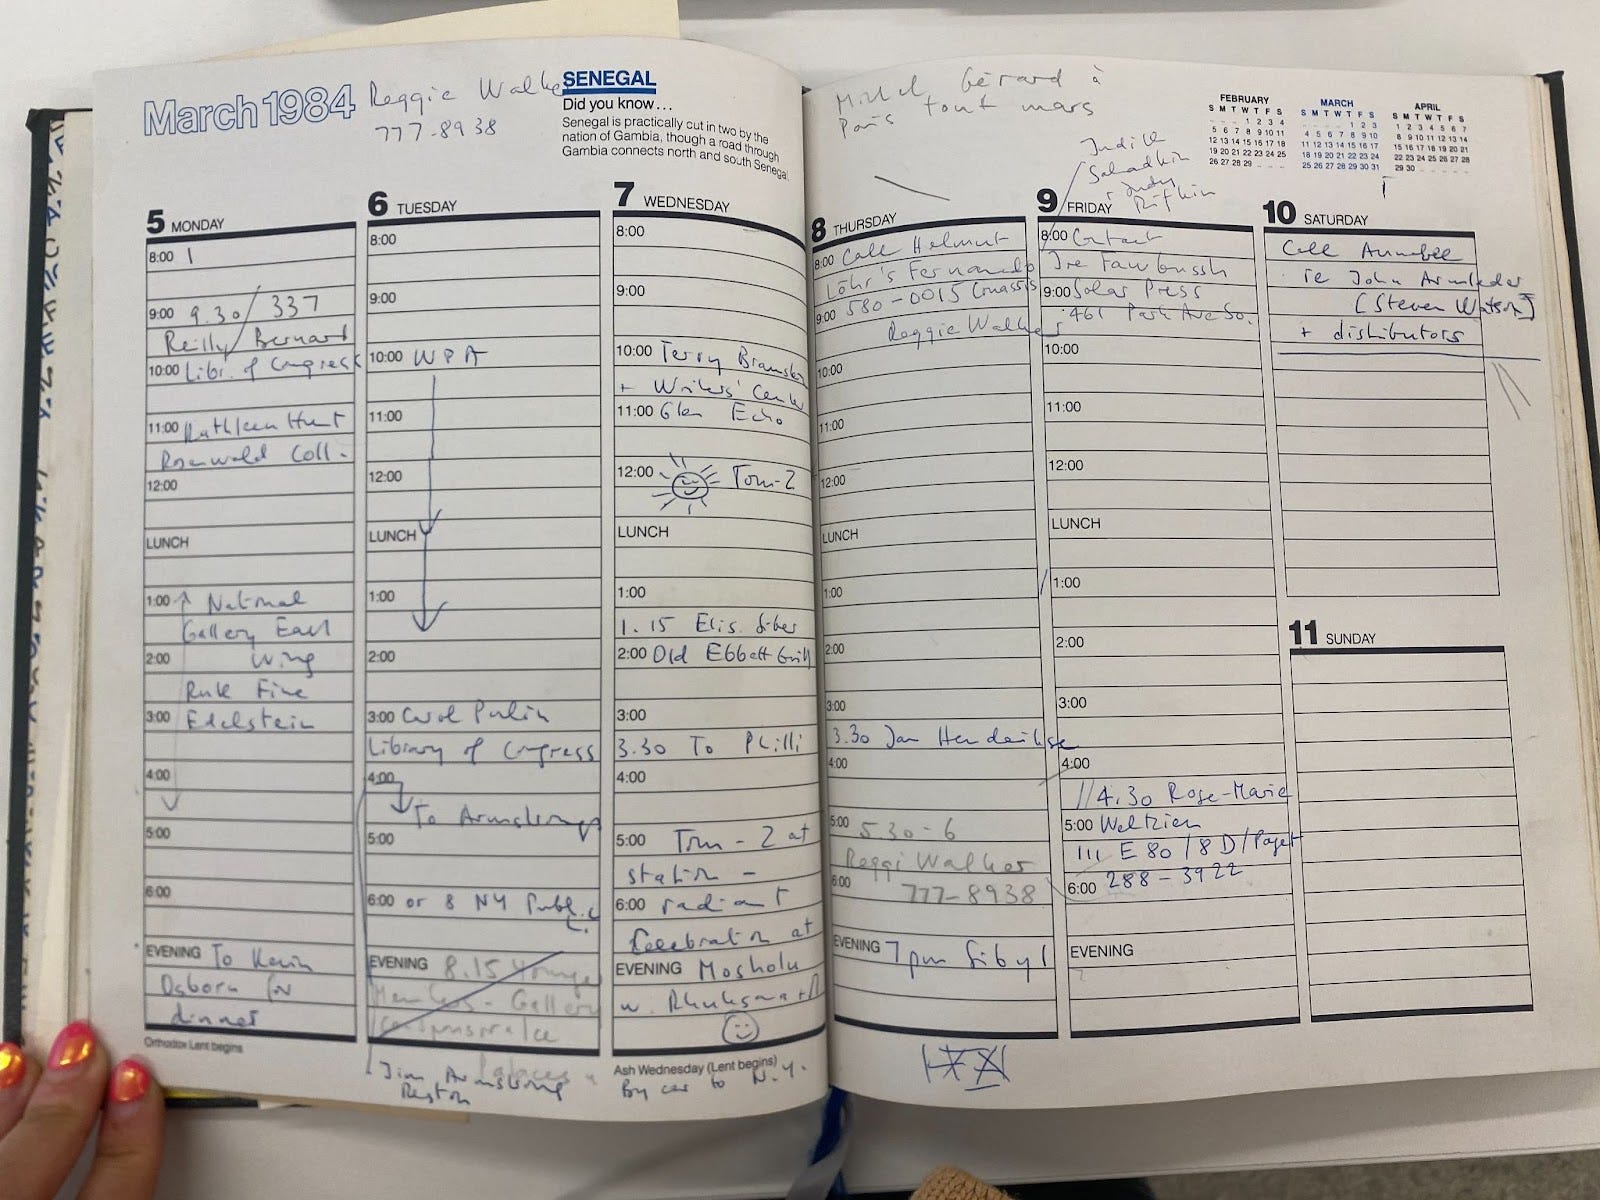 March 1984
Reggie Walker
777-8938
SENEGAL
Did you know...
Senegal is practically cut in two by the
nation of Gambia, though a road through
Gambia connects north and south Senegal.
5 MONDAY
8:00
9:00 9.30 / 337
Reilly / Bernard
10:00 Libr. of Congress
11:00 Kathleen Hunt
Rosenwald Coll.
12:00
LUNCH
1:00 National
Gallery East
2:00 Wing
Ruth Fine
3:00 Edelstein
4:00
5:00
6:00
EVENING To Kevin
Osborn for
dinner
Orthodox Lent begins
6 TUESDAY
8:00
9:00
10:00 WPA
11:00
12:00
LUNCH
1:00
2:00
3:00 Carol Pulin
Library of Congress
4:00
To Armstrongs
5:00
6:00 or 8 NY Publ.
EVENING 8.15 Younger
Members - Gallery
Jim Armstrong
Reston
7 WEDNESDAY
8:00
9:00
10:00 Terry
+ Writers' Center
11:00 Glen Echo
12:00 Tom-2
LUNCH
1:00
1.15 Elis.
2:00 Old Ebbett Grill
3:00
3.30 To Philli
4:00
5:00 Tom-2 at
station -
6:00 radiant
celebration at
EVENING Mosholu
w.
Ash Wednesday (Lent begins)
By car to N.Y.
Michel Gérard à
Paris tout mars
FEBRUARY
S M T W T F S
1 2 3 4
5 6 7 8 9 10 11
12 13 14 15 16 17 18
19 20 21 22 23 24 25
26 27 28 29
MARCH
S M T W T F S
1 2 3
4 5 6 7 8 9 10
11 12 13 14 15 16 17
18 19 20 21 22 23 24
25 26 27 28 29 30 31
APRIL
S M T W T F S
1 2 3 4 5 6 7
8 9 10 11 12 13 14
15 16 17 18 19 20 21
22 23 24 25 26 27 28
29 30
Judith
+ Judy
Rifkin
8 THURSDAY
8:00 Call Helmut
Löhr's Fernando
9:00 580-0015
Reggie Walker
10:00
11:00
12:00
LUNCH
1:00
2:00
3:00
3.30 Jan
4:00
5:00 5.30-6
Reggi Walker
6:00 777-8938
EVENING 7pm Sibyl
9 FRIDAY
8:00 Contact
Ire Fawbussh
9:00 Solar Press
461 Park Ave So.
10:00
11:00
12:00
LUNCH
1:00
2:00
3:00
4:00
4.30 Rose-Marie
5:00 Weltzien
111 E 80 / 8 D / Paget
6:00 288-3922
EVENING
10 SATURDAY
Call Annabee
re John Armleder
[Steven Watson]
+ distributors
11 SUNDAY